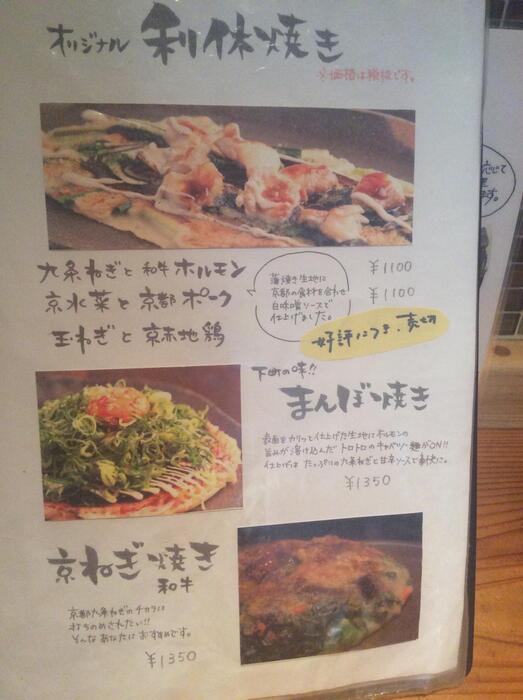 オリジナル 利休焼き
※価格は税抜です。
九条ねぎと和牛ホルモン ¥1100
京水菜と京都ポーク ¥1100
玉ねぎと京赤地鶏
薄焼き生地に
京都の食材を合わせ
白味噌ソースで
仕上げました。
好評につき、売切
下町の味!!
まんぼ焼き
表面をカリッと仕上げた生地にホルモンの
旨みが溶け込んだトロトロのキャベツ・麺がON!!
仕上げは たっぷりの九条ねぎと甘辛ソースで豪快に。
¥1350
京ねぎ焼き
和牛
京都九条ねぎのチカラに
打ちのめされたい!!
そんなあなたにおすすめです。
¥1350
応じて
ます。